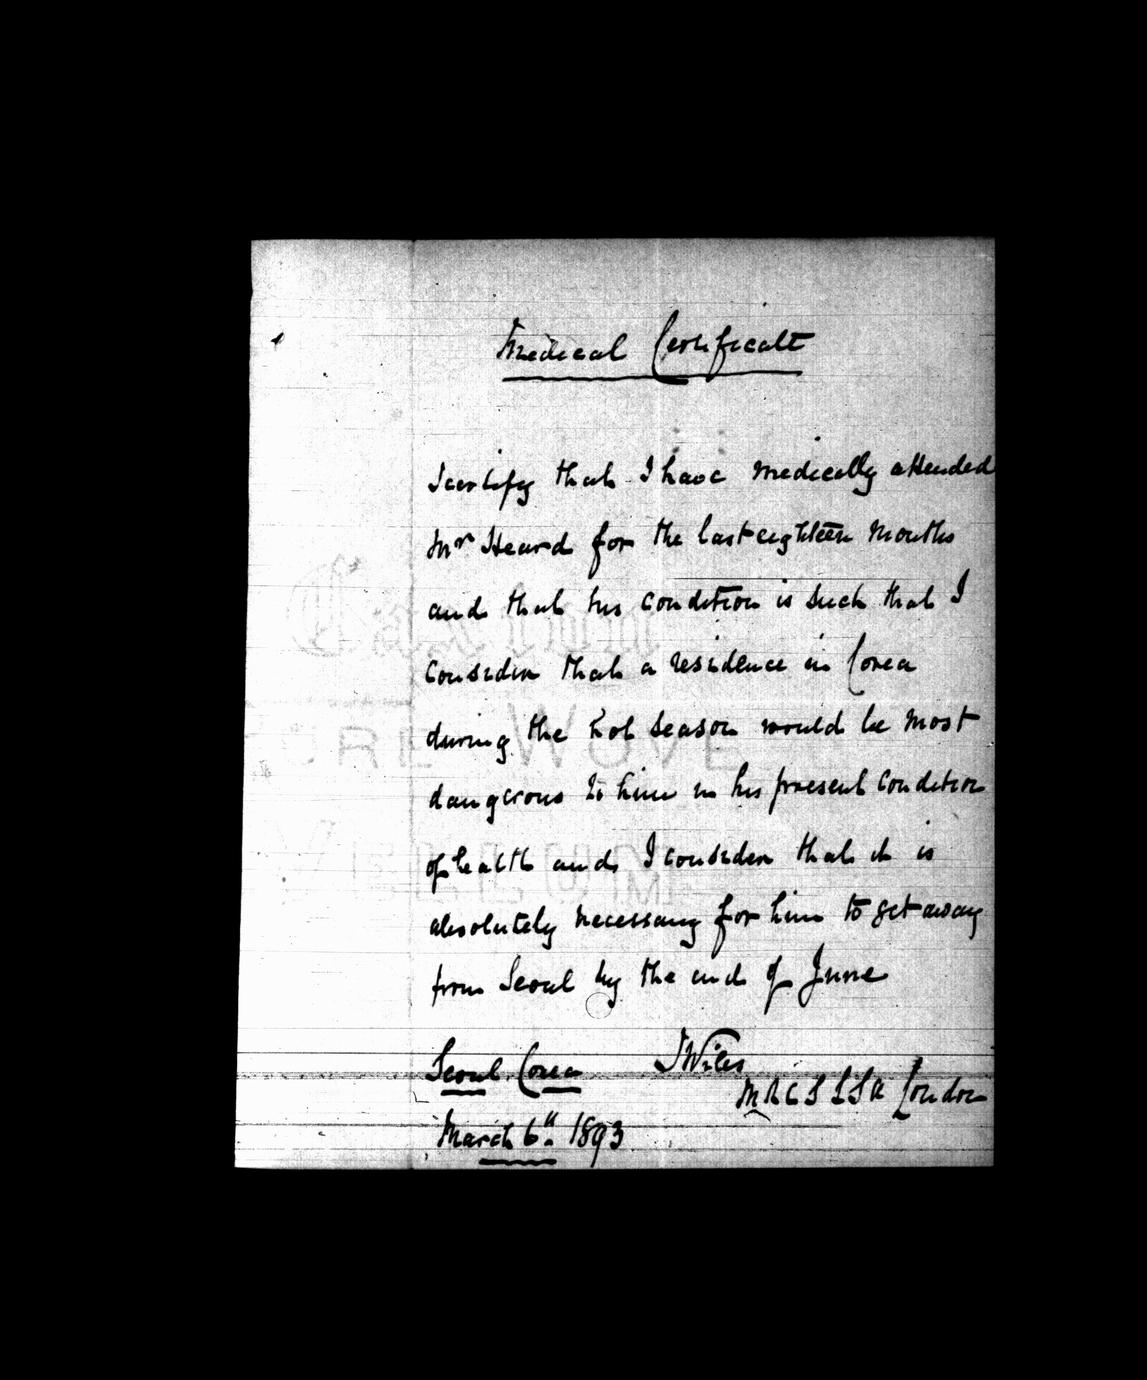 Medical Certificate
I certify that I have medically attended
Mr Heard for the last eighteen months
and that his condition is such that I
consider that a residence in Corea
during the hot season would be most
dangerous to him in his present condition
of health and I consider that it is
absolutely necessary for him to get away
from Seoul by the end of June
Seoul, Corea JWiles
MRCS LSA London
March 6th 1893
WOVE
VELLUM